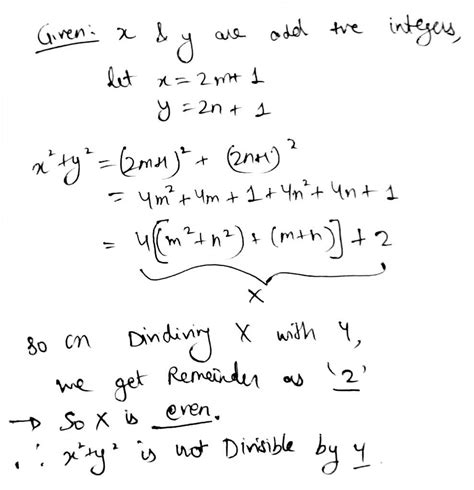 Given: x & y are odd +ve integers,
let x = 2m+1
y = 2n + 1
x²+y² = (2m+1)² + (2n+1)²
= 4m²+4m+1+4n²+4n+1
= 4[(m²+n²)+(m+n)]+2
X
So on Dindiving X with 4,
we get Remeinder as '2'
→ So X is even.
∴ x²+y² is not Divisible by 4